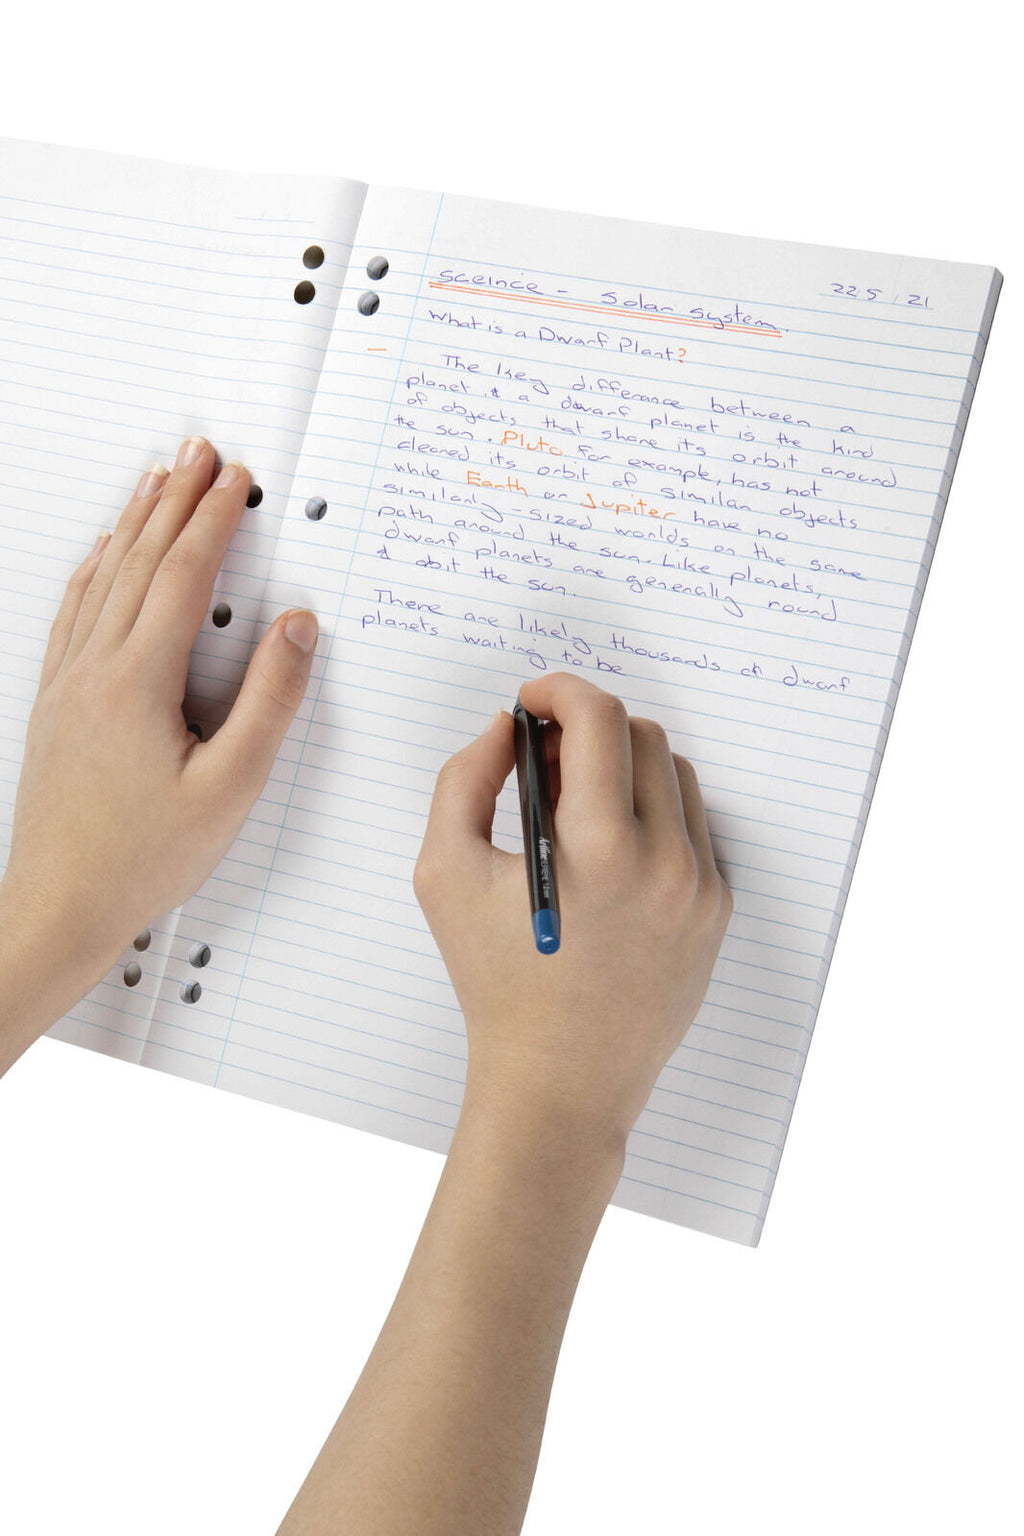 22 5 / 21
sceince - Solar system.
What is a Dwarf Plant?
The key difference between a
planet & a dwarf planet is the kind
of objects that share its orbit around
the sun. Pluto for example, has not
cleared its orbit of similar objects
while Earth or Jupiter have no
similarly-sized worlds on the same
path around the sun. Like planets,
dwarf planets are generally round
& obit the sun.
There are likely thousands of dwarf
planets waiting to be
Artline